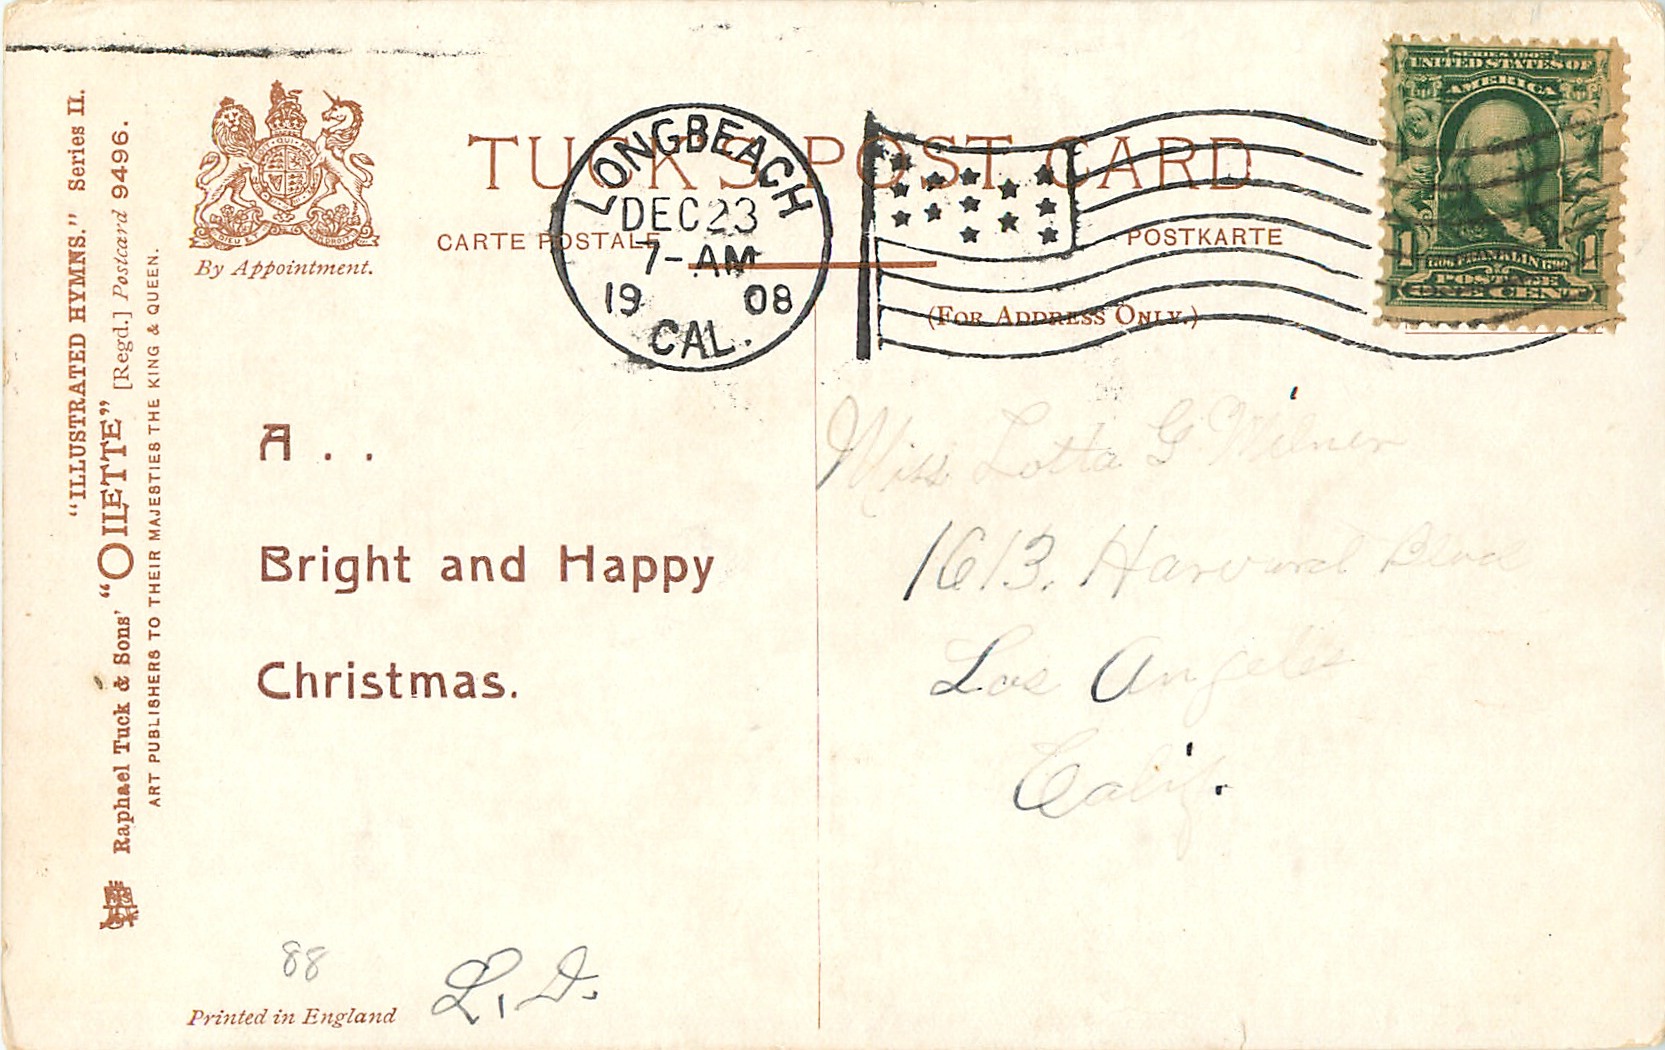 "ILLUSTRATED HYMNS." Series II.
Raphael Tuck & Sons' "OILETTE" [Regd.] Postcard 9496.
ART PUBLISHERS TO THEIR MAJESTIES THE KING & QUEEN.
By Appointment.
TUCK'S POST CARD
CARTE POSTALE
POSTKARTE
(FOR ADDRESS ONLY.)
LONG BEACH
DEC 23
7-AM
1908
CAL.
SERIES 1902
UNITED STATES OF
AMERICA
1 FRANKLIN 1
POSTAGE
ONE CENT
A . .
Bright and Happy
Christmas.
Miss Lotta G Milner
1613. Harvard Blvd
Los Angeles
Calif.
88
L. D.
Printed in England